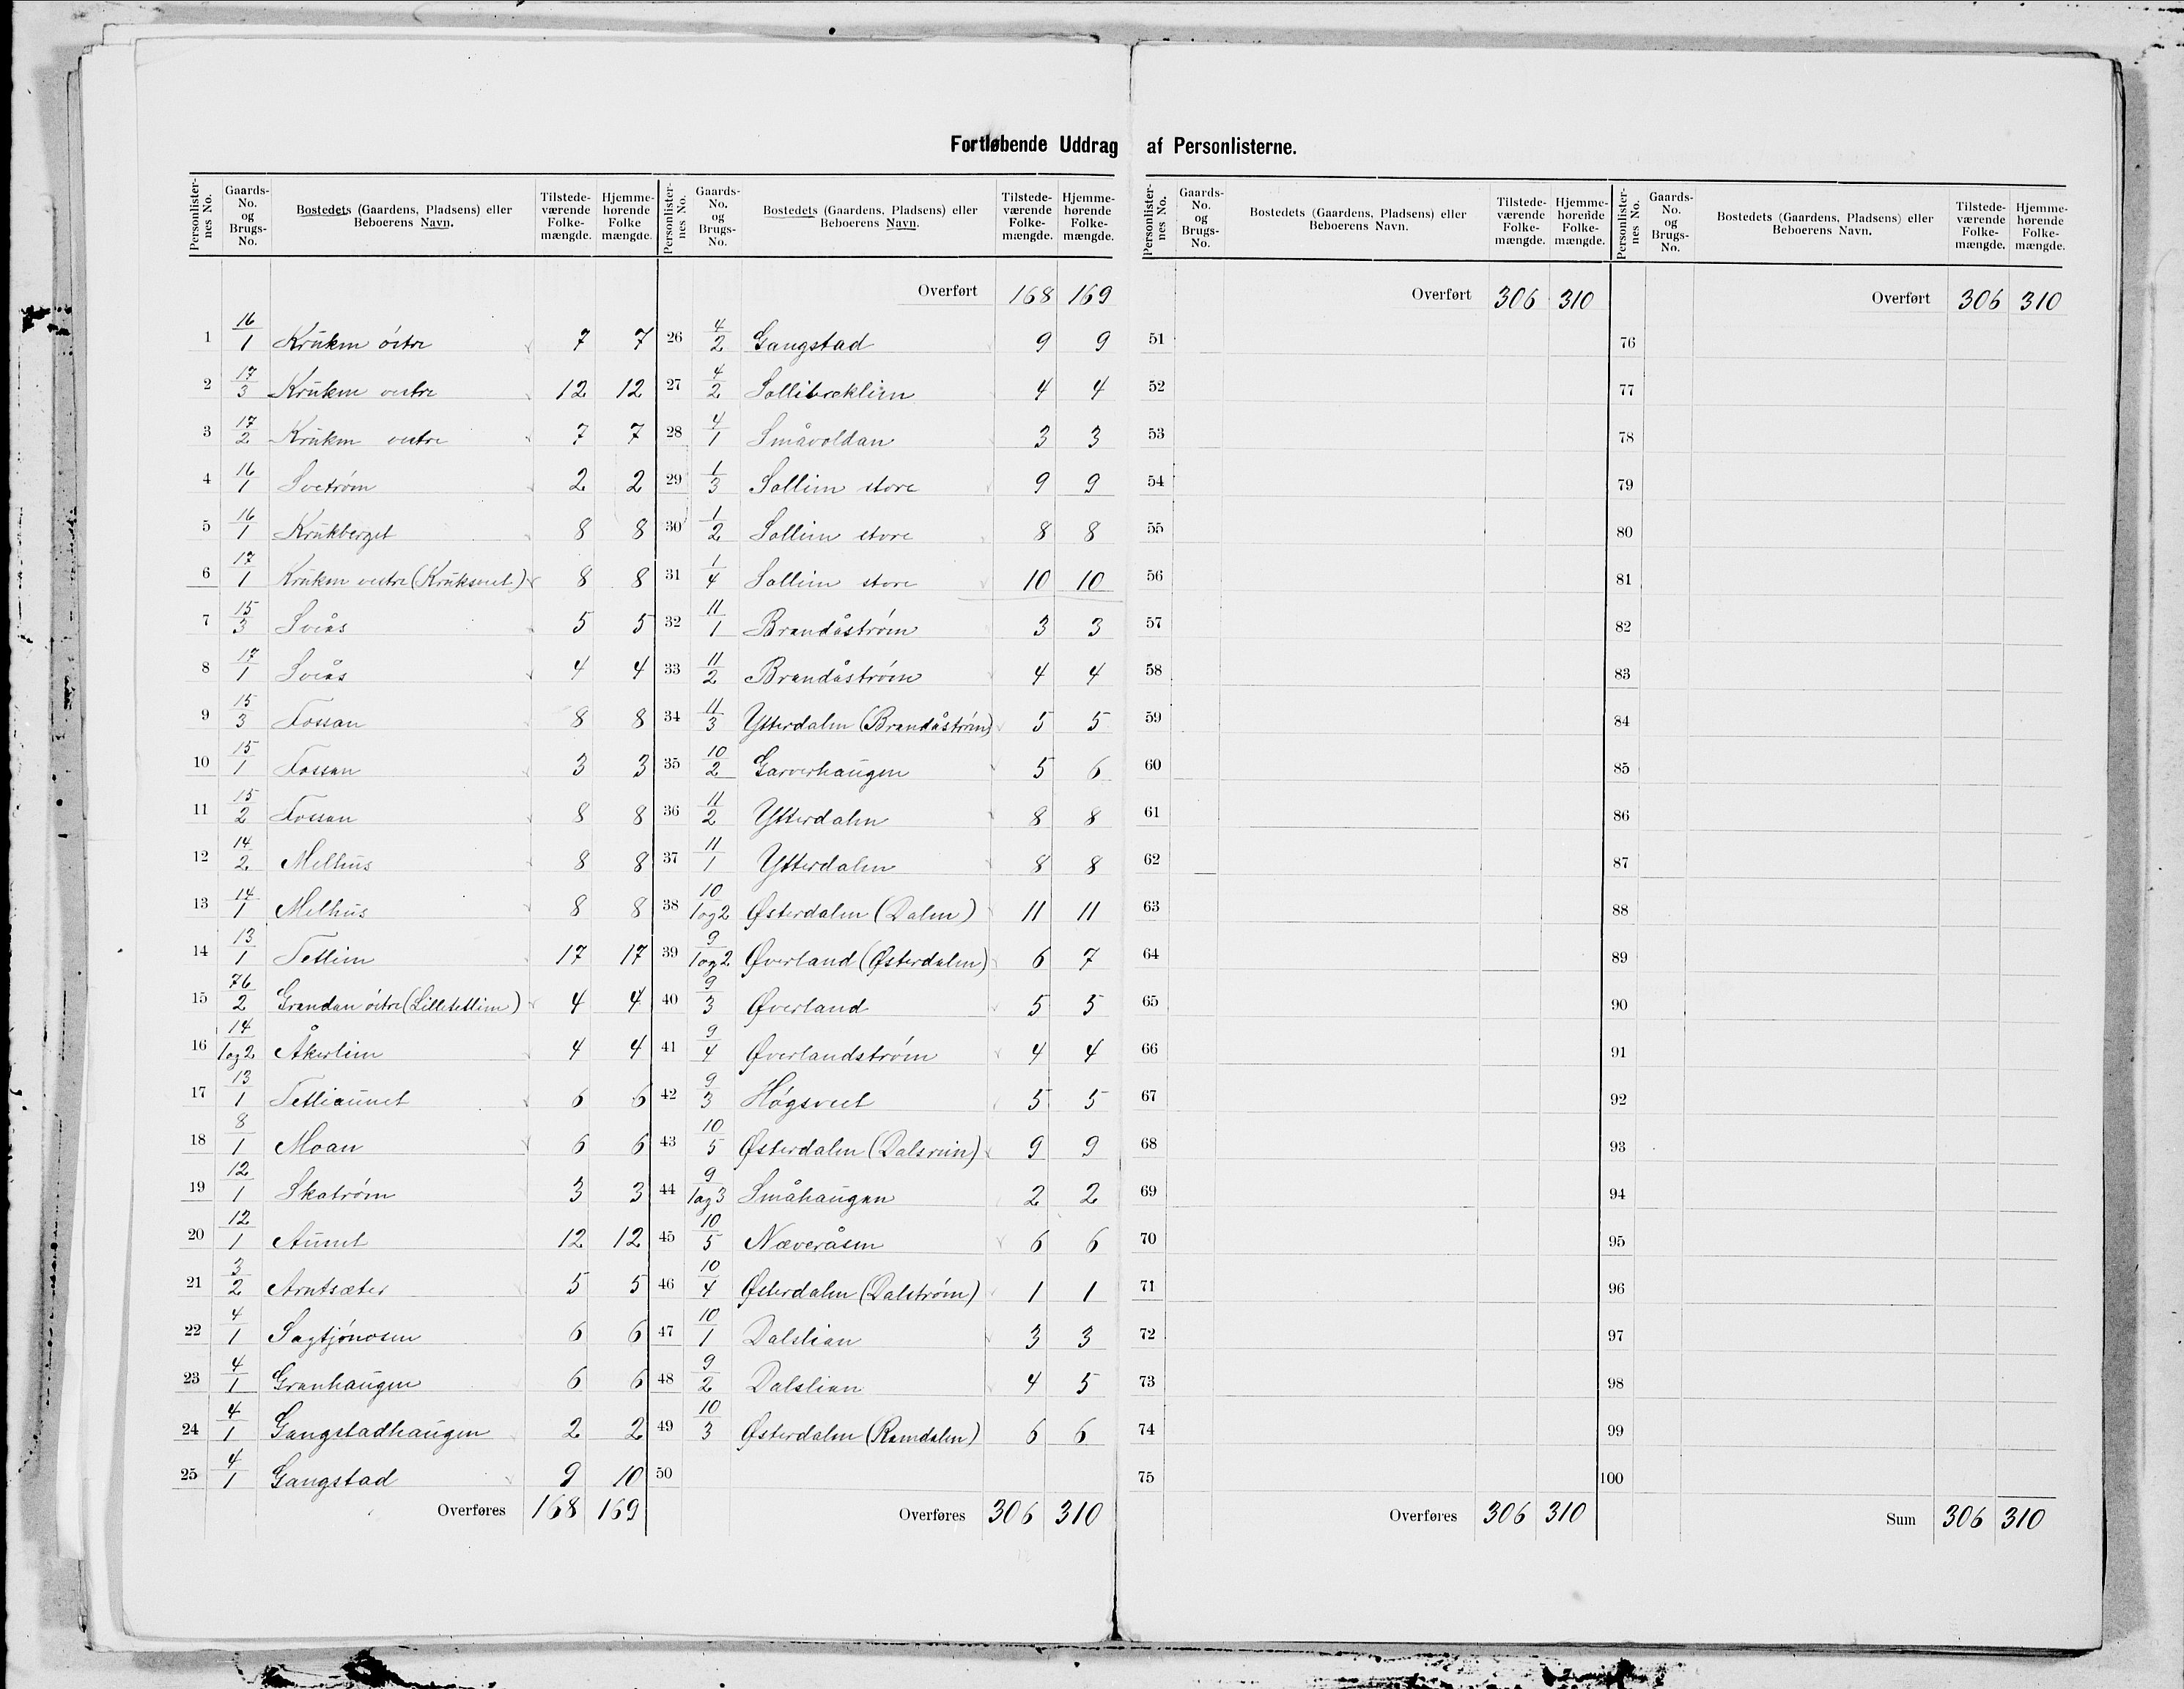 Fortløbende Uddrag af Personlisterne.
Personlister-nes No. Gaards-No. og Brugs-No. Bostedets (Gaardens, Pladsens) eller Beboerens Navn. Tilstede-værende Folke-mængde. Hjemme-hørende Folke mængde.
1 16/1 Kruken östre 7 7
2 17/3 Kruken vestre 12 12
3 17/2 Kruken vestre 7 7
4 16/1 Svetrøm 2 2
5 16/1 Krukberget 8 8
6 17/1 Kruken vestre (Kruksveet) 8 8
7 15/3 Sveås 5 5
8 17/1 Sveås 4 4
9 15/3 Fossan 8 8
10 15/1 Fossan 3 3
11 15/2 Fossan 8 8
12 14/2 Melhus 8 8
13 14/1 Melhus 8 8
14 13/1 Tetlien 17 17
15 76/2 Grandan östre (Lilletetlien) 4 4
16 14/1og2 Åkerlien 4 4
17 13/1 Tetliaunet 6 6
18 8/1 Moan 6 6
19 12/1 Skatrøm 3 3
20 12/1 Aunet 12 12
21 3/2 Arntsæter 5 5
22 4/1 Sagtjønosen 6 6
23 4/1 Granhaugen 6 6
24 4/1 Gangstadhaugen 2 2
25 4/1 Gangstad 9 10
Overføres 168 169
Personlister-nes No. Gaards-No. og Brugs-No. Bostedets (Gaardens, Pladsens) eller Beboerens Navn. Tilstede-værende Folke-mængde. Hjemme-hørende Folke-mængde.
Overført 168 169
26 4/2 Gangstad 9 9
27 4/2 Sollibræklien 4 4
28 4/1 Småvoldan 3 3
29 1/3 Sollien store 9 9
30 1/2 Sollien store 8 8
31 1/4 Sollien store 10 10
32 11/1 Brandåstrøm 3 3
33 11/2 Brandåstrøm 4 4
34 11/3 Ytterdalen (Brandåstrøm) 5 5
35 10/2 Garverhaugen 5 6
36 11/2 Ytterdalen 8 8
37 11/1 Ytterdalen 8 8
38 10/1og2 Østerdalen (Dalen) 11 11
39 9/1og2 Øverland (Østerdalen) 6 7
40 9/3 Øverland 5 5
41 9/4 Øverlandstrøm 4 4
42 9/3 Høgsveet 5 5
43 10/5 Østerdalen (Dalsveen) 9 9
44 9/1og3 Småhaugen 2 2
45 10/5 Næveråsen 6 6
46 10/4 Østerdalen (Dalstrøm) 1 1
47 10/1 Dalslian 3 3
48 9/2 Dalslian 4 5
49 10/3 Østerdalen (Ramdalen) 6 6
50
Overføres 306 310
Personlister-nes No. Gaards-No. og Brugs-No. Bostedets (Gaardens, Pladsens) eller Beboerens Navn. Tilstede-værende Folke-mængde. Hjemme-hørende Folke-mængde.
Overført 306 310
51
52
53
54
55
56
57
58
59
60
61
62
63
64
65
66
67
68
69
70
71
72
73
74
75
Overføres 306 310
Personlister-nes No. Gaards-No. og Brugs-No. Bostedets (Gaardens, Pladsens) eller Beboerens Navn. Tilstede-værende Folke-mængde. Hjemme-hørende Folke-mængde.
Overført 306 310
76
77
78
79
80
81
82
83
84
85
86
87
88
89
90
91
92
93
94
95
96
97
98
99
100
Sum 306 310